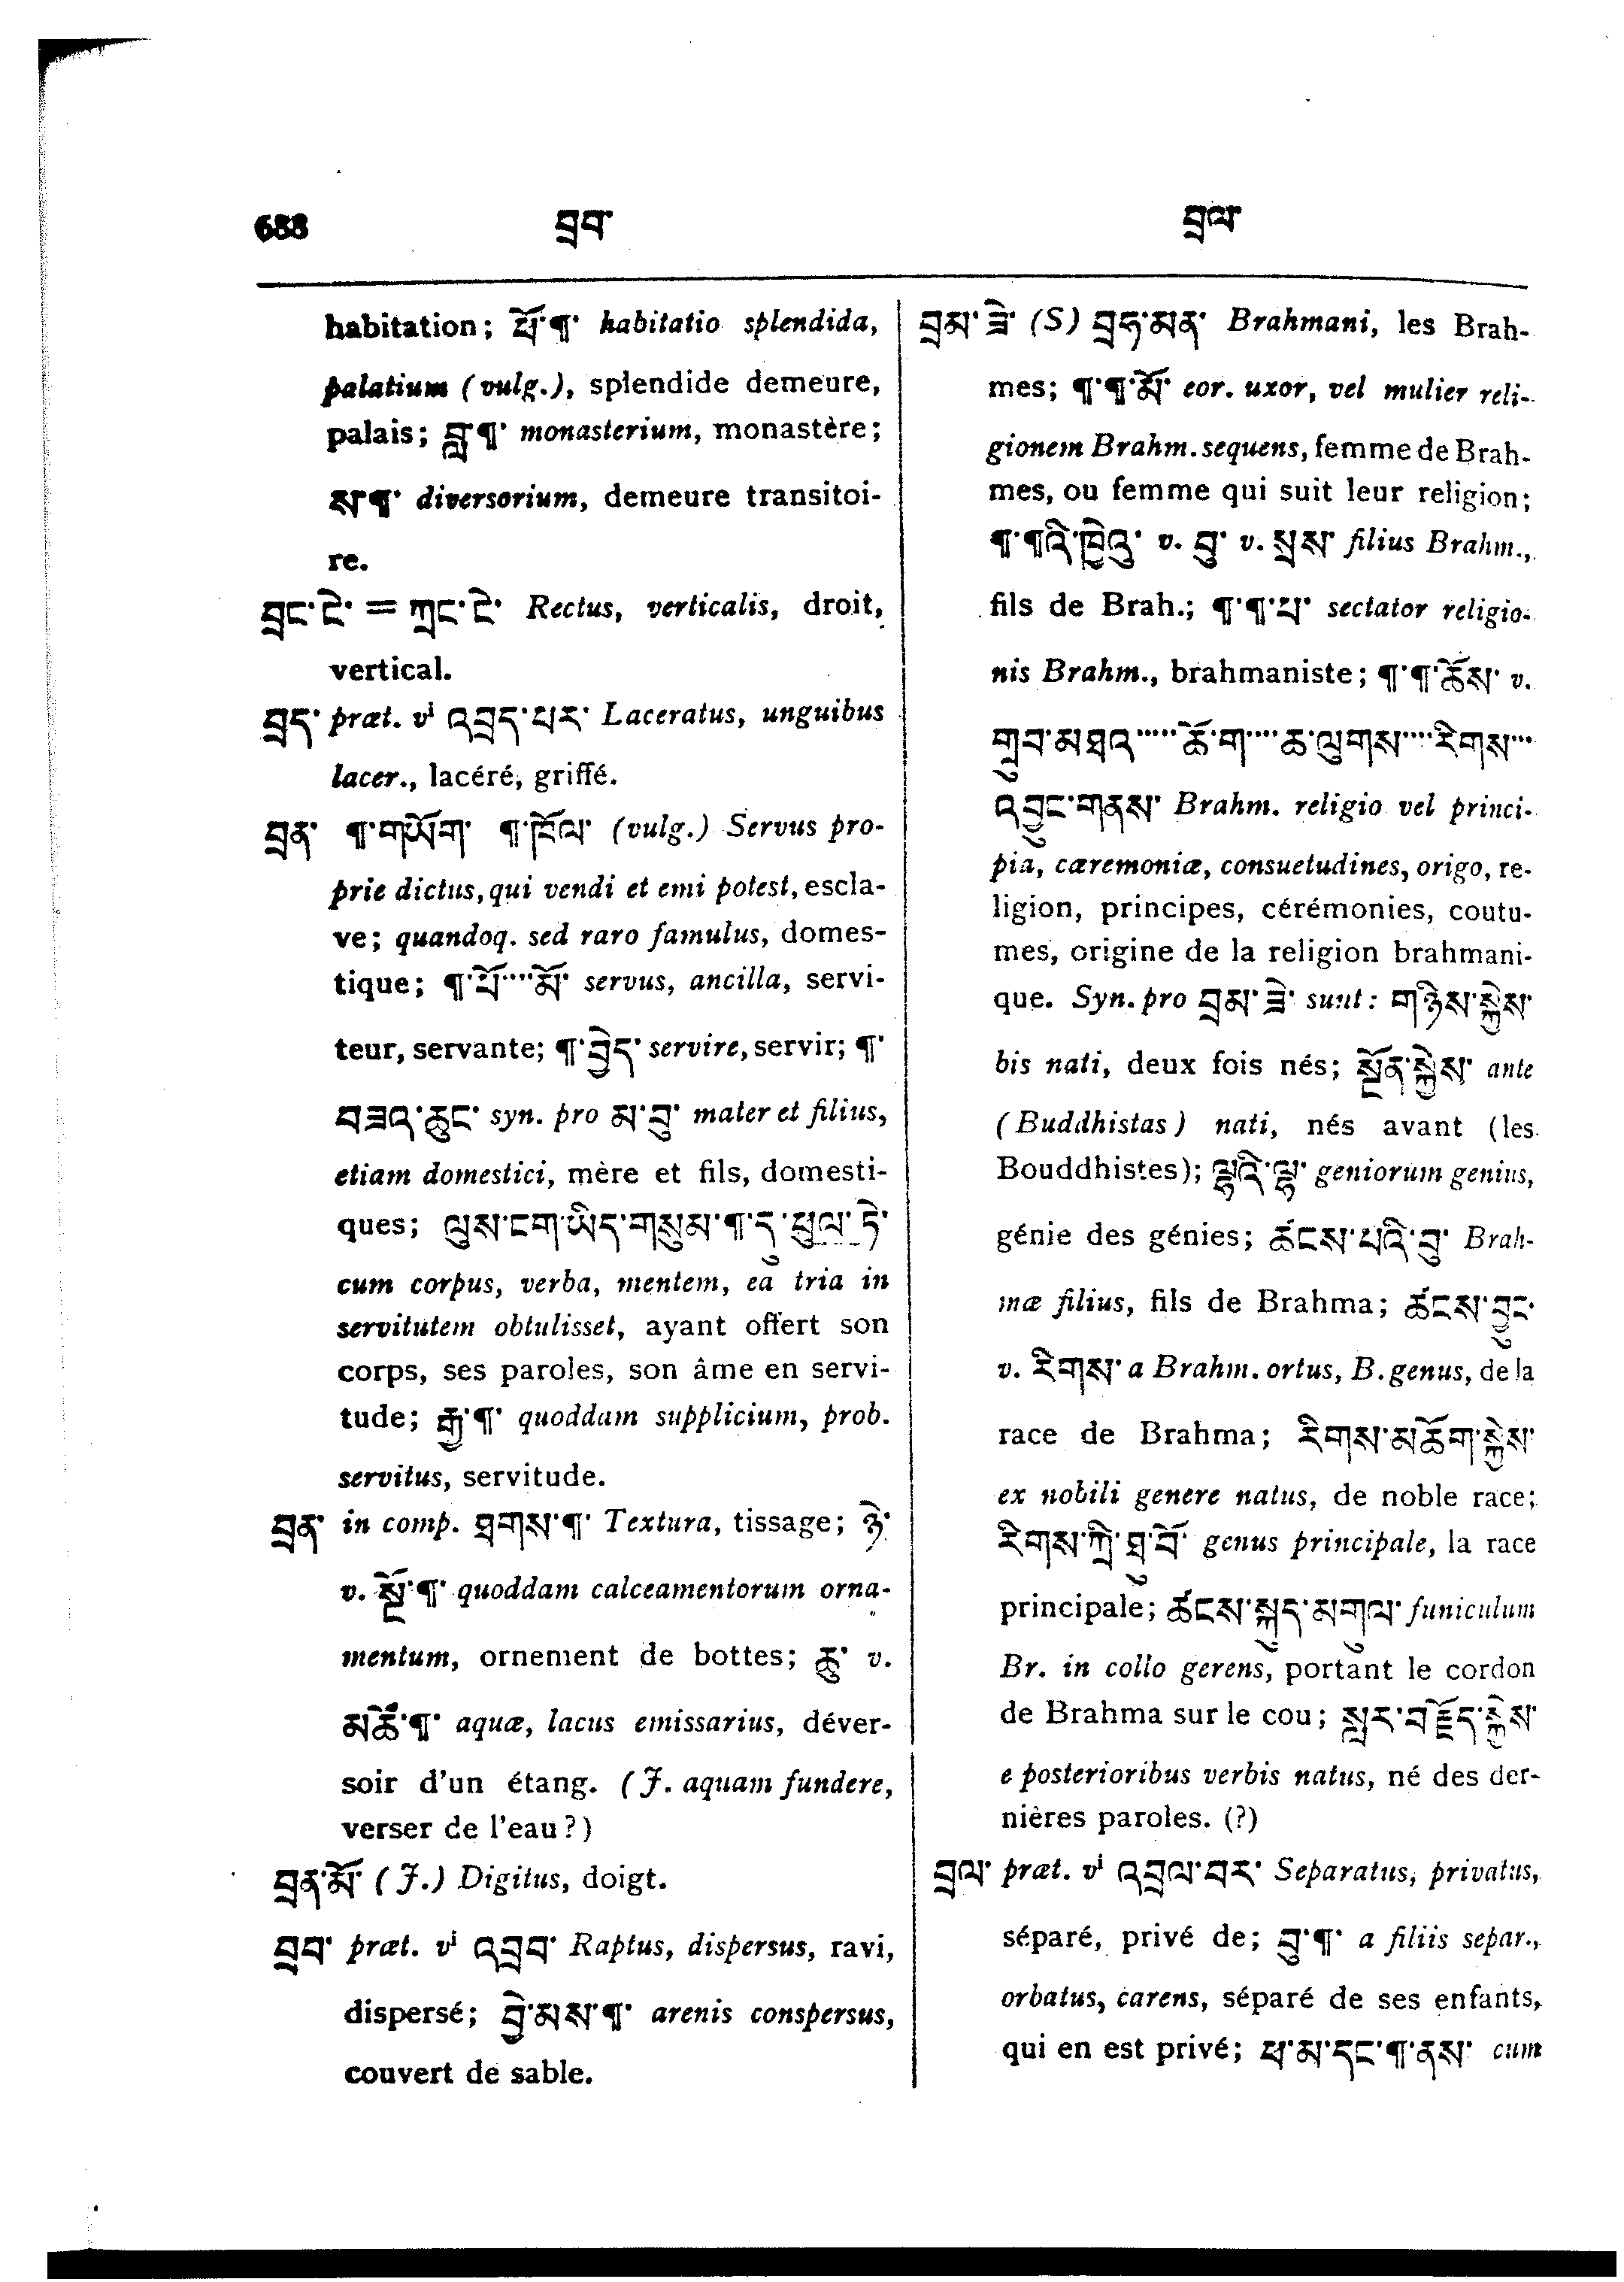 688 བྲབ་ བྲལ་
habitation; ཕོ་¶་ habitatio splendida,
palatium (vulg.), splendide demeure,
palais; བླ་¶་ monasterium, monastère;
ས་¶་ diversorium, demeure transitoi-
re.
བྲང་ངེ་ = ཀྲང་ངེ་ Rectus, verticalis, droit,
vertical.
བྲད་ præt. vⁱ འབྲད་པར་ Laceratus, unguibus
lacer., lacéré, griffé.
བྲན་ ¶་གཡོག་ ¶་ཁོལ་ (vulg.) Servus pro-
prie dictus, qui vendi et emi potest, escla-
ve; quandoq. sed raro famulus, domes-
tique; ¶་ཕོ་····མོ་ servus, ancilla, servi-
teur, servante; ¶་བྱེད་ servire, servir; ¶་
བཟའ་ཆུང་ syn. pro མ་བུ་ mater et filius,
etiam domestici, mère et fils, domesti-
ques; ལུས་ངག་ཡིད་གསུམ་¶་དུ་ཕུལ་ཏེ་
cum corpus, verba, mentem, ea tria in
servitutem obtulisset, ayant offert son
corps, ses paroles, son âme en servi-
tude; རྒྱ་¶་ quoddam supplicium, prob.
servitus, servitude.
བྲན་ in comp. ཐགས་¶་ Textura, tissage; ཉེ་
v. སྔོ་¶་ quoddam calceamentorum orna-
mentum, ornement de bottes; ཆུ་ v.
མཚོ་¶་ aquæ, lacus emissarius, déver-
soir d'un étang. (J. aquam fundere,
verser de l'eau?)
བྲན་མོ་ (J.) Digitus, doigt.
བྲབ་ præt. vⁱ འབྲབ་ Raptus, dispersus, ravi,
dispersé; བྱེ་མས་¶་ arenis conspersus,
couvert de sable.
བྲམ་ཟེ་ (S) བྲཧ་མན་ Brahmani, les Brah-
mes; ¶་¶་མོ་ eor. uxor, vel mulier reli-
gionem Brahm. sequens, femme de Brah-
mes, ou femme qui suit leur religion;
¶་¶འི་ཁྱེའུ་ v. བུ་ v. སྲས་ filius Brahm.,
fils de Brah.; ¶་¶་པ་ sectator religio-
nis Brahm., brahmaniste; ¶་¶་ཆོས་ v.
གྲུབ་མཐའ་····ཆོ་ག་····ཆ་ལུགས་····རིགས་····
འབྱུང་གནས་ Brahm. religio vel princi-
pia, cæremoniæ, consuetudines, origo, re-
ligion, principes, cérémonies, coutu-
mes, origine de la religion brahmani-
que. Syn. pro བྲམ་ཟེ་ sunt: གཉིས་སྐྱེས་
bis nati, deux fois nés; སྔོན་སྐྱེས་ ante
(Buddhistas) nati, nés avant (les
Bouddhistes); ལྷའི་ལྷ་ geniorum genius,
génie des génies; ཚངས་པའི་བུ་ Brah-
mæ filius, fils de Brahma; ཚངས་བྱུང་
v. རིགས་ a Brahm. ortus, B. genus, de la
race de Brahma; རིགས་མཆོག་སྐྱེས་
ex nobili genere natus, de noble race;
རིགས་ཀྱི་ཐུ་བོ་ genus principale, la race
principale; ཚངས་སྐུད་མགུལ་ funiculum
Br. in collo gerens, portant le cordon
de Brahma sur le cou; སླར་བརྗོད་སྐྱེས་
e posterioribus verbis natus, né des der-
nières paroles. (?)
བྲལ་ præt. vⁱ འབྲལ་བར་ Separatus, privatus,
séparé, privé de; བུ་¶་ a filiis separ.,
orbatus, carens, séparé de ses enfants,
qui en est privé; ཕ་མ་དང་¶་ནས་ cum